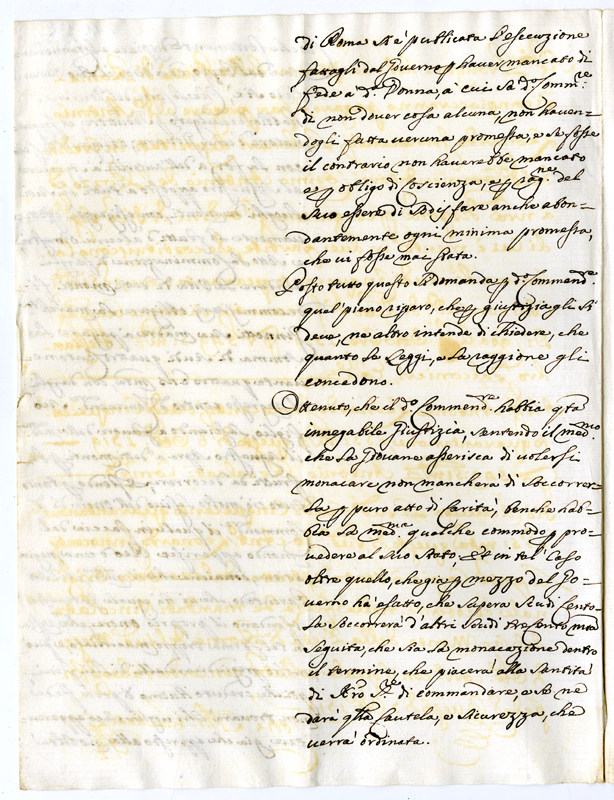 di Roma si è publicata l'esecuzione
fattagli dal Governo p haver mancato di
fede a dᵃ Donna, à cui il dᵒ Commʳᵉ
di non dover cosa alcuna, non haven-
dogli fatta veruna promessa, e se fosse
il contrario non haverebbe mancato
e p obligo di Coscienza, e p ragⁿᵉ del
suo essere di sodisfare anche abon-
dantemente ogni minima promessa,
che vi fosse mai stata.
Posto tutto questo si domanda p dᵒ Commendʳᵉ
quel pieno riparo, che p giustizia gli si
deve, ne altro intende di chiedere, che
quanto le Leggi, e la raggione gli
concedono.
Ottenuto, che il dᵒ Commendʳᵉ habbia qᵗᵃ
innegabile Giustizia, sentendo il medᵐᵒ
che la Giovane asserisca di volersi
monacare non mancherà di soccorrer-
la p puro atto di Carità, benche hab-
bia la medᵐᵃ qualche commodo p pro-
vedere al suo stato, Et in tal Caso
oltre quello, che già p mezzo del Go-
verno hà esatto, che supera Scudi Cento
la soccorrerà d'altri Scudi trecento
seguita, che sia la monacazione dentro
il termine, che piacerà alla Santità
di Nrō Sʳᵉ di commandare, e se ne
darà qlla Cautela, e Sicurezza, che
verrà ordinata.